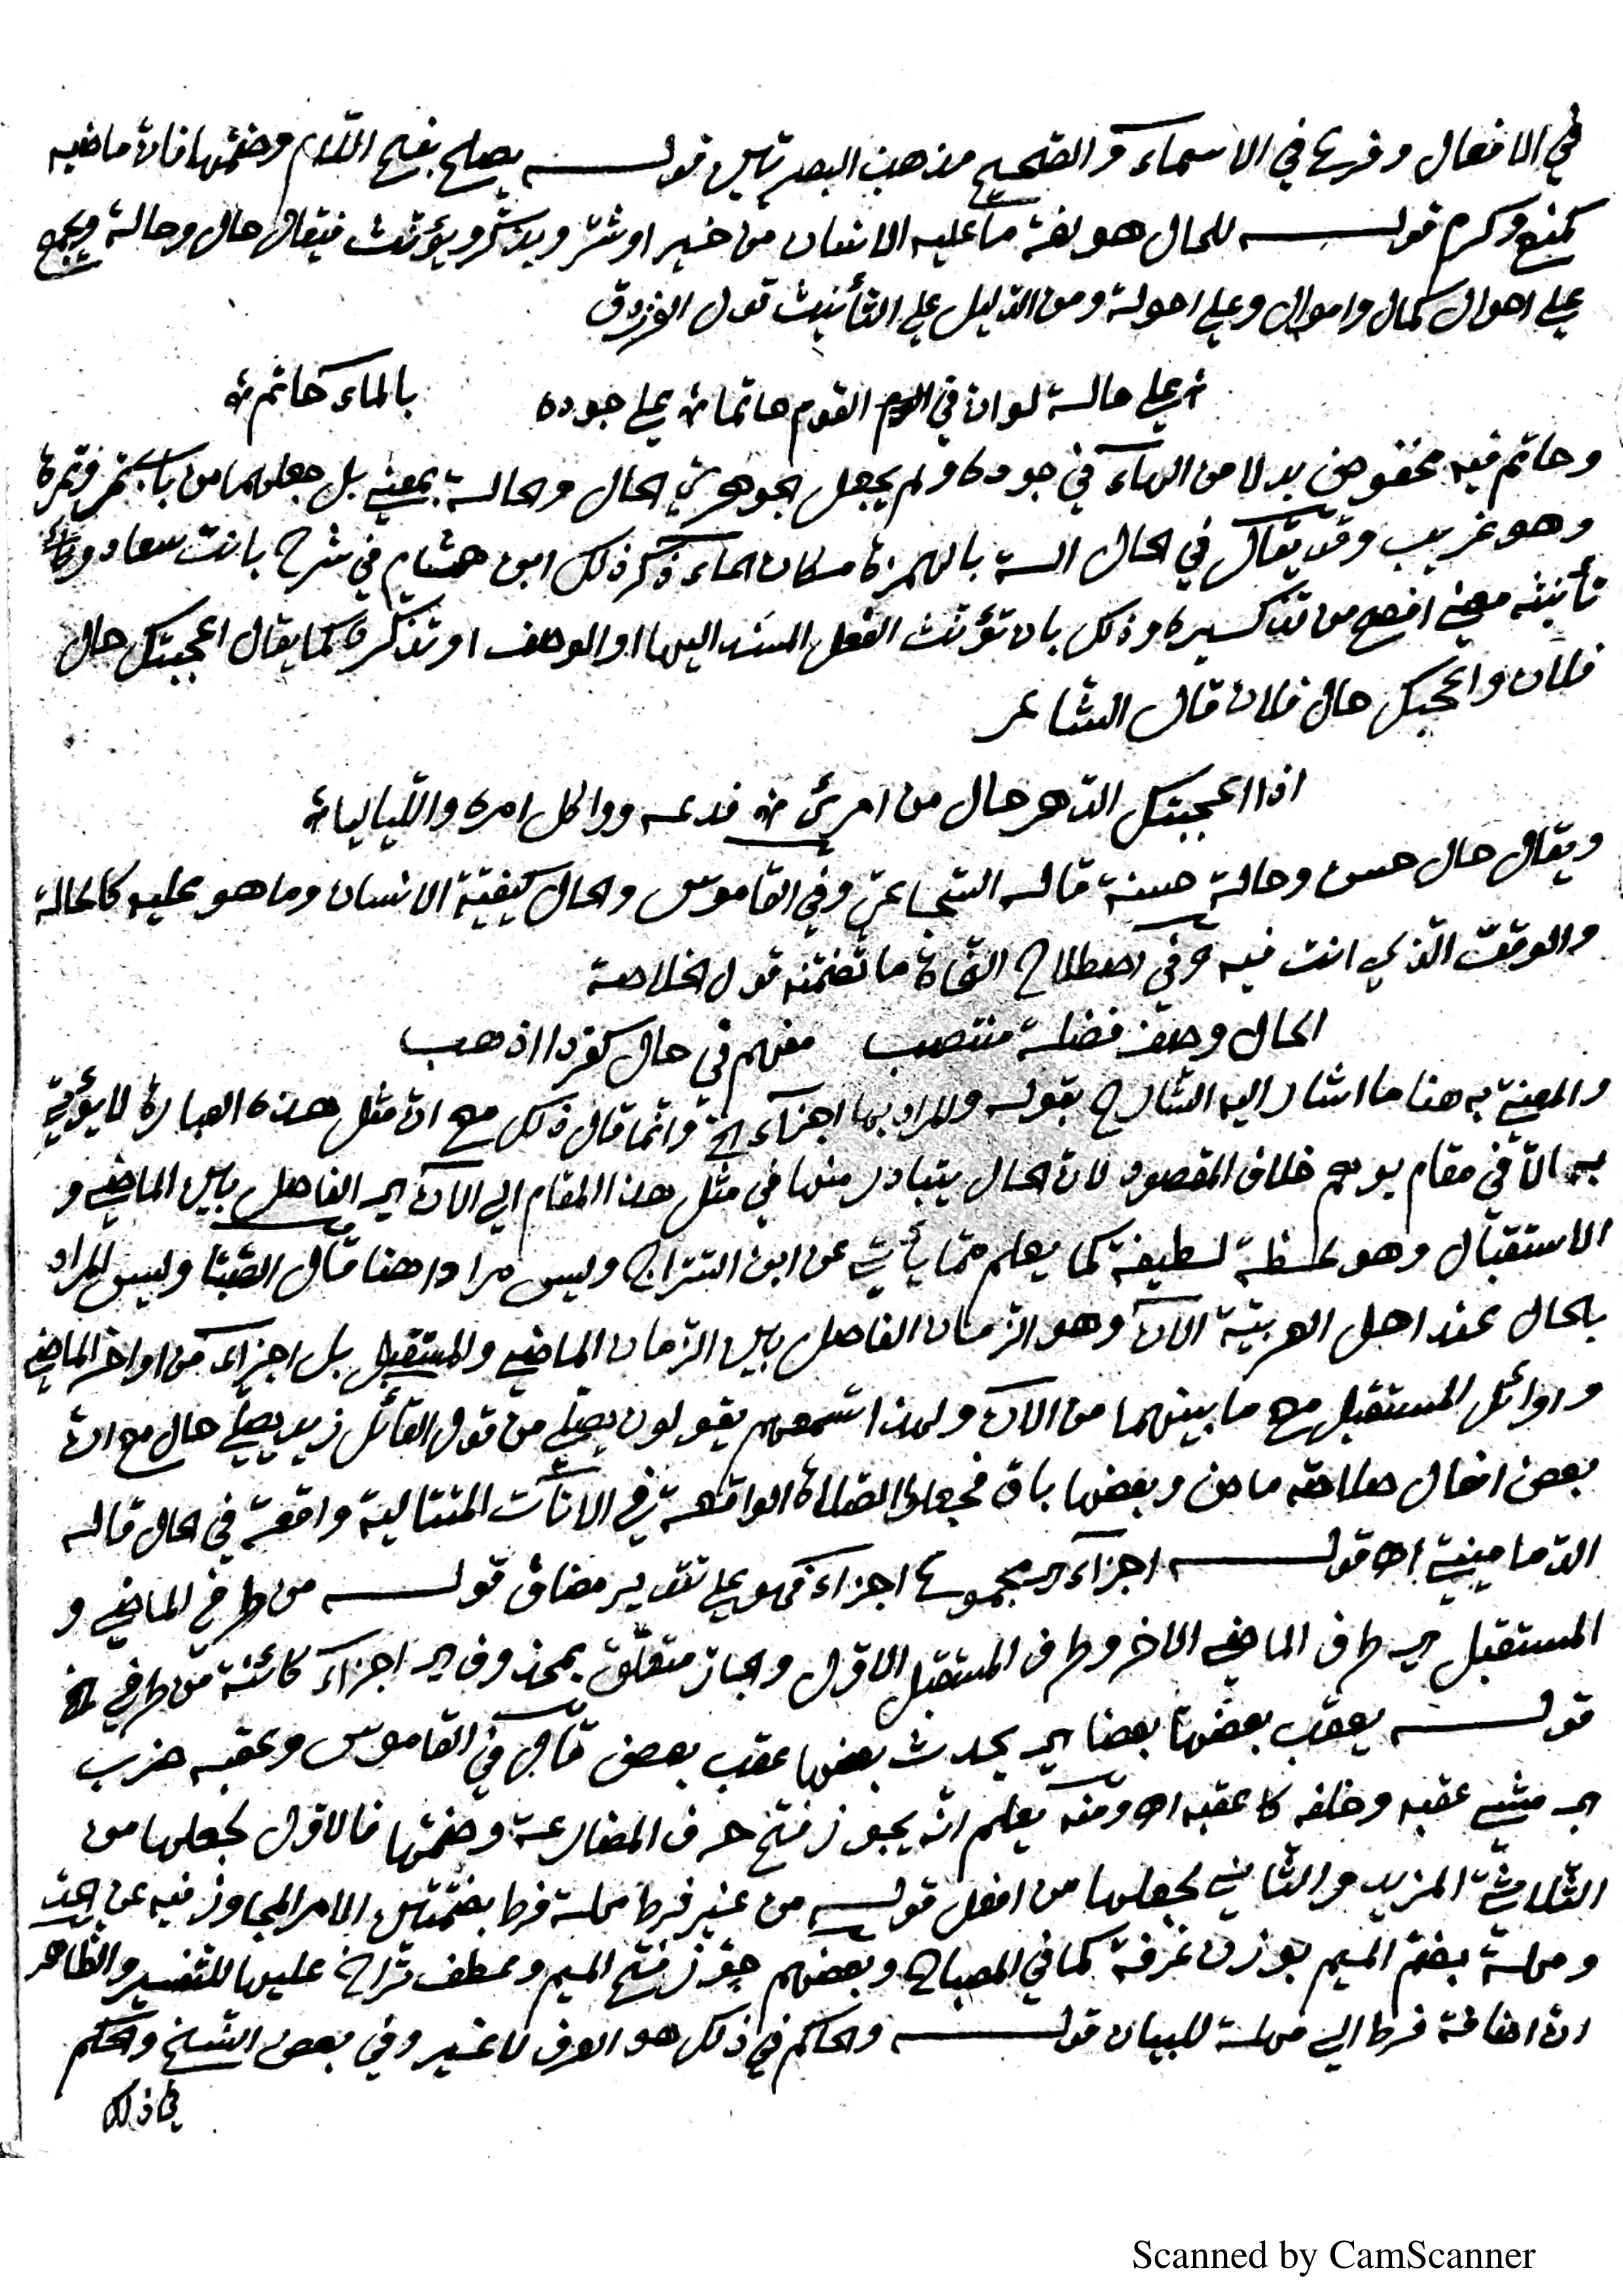 في الافعال وفرع في الاسماء والصحيح مذهب البصريين قوله يصلح بفتح اللام وضمها فان ماضيه
كمنع وكرم قوله للحال هو لغة ما عليه الانسان من خير او شر ويذكر ويؤنث فيقال حال وحالة ويجمع
على احوال كمال واموال وعلى احولة ومن الدليل على التأنيث قول الفرزدق
على حالة لو ان في القوم حاتما على جوده بالماء حاتم
وحاتم فيه مخفوض بدلا من الهاء في جوده ولم يجعل الجوهري الحال والحالة بمعنى بل جعلهما من باب تمر وتمرة
وهو غريب وقد يقال في الحال الة بالهمزة مكان الحاء ذكر ذلك ابن هشام في شرح بانت سعاد
تأنيثه معنى افصح من تذكيره وذلك بان تؤنث الفعل المسند اليها او الوصف او تذكره كما يقال اعجبتك حال
فلان واعجبك حال فلان قال الشاعر
اذا اعجبتك الدهر حال من امرئ فدعه وواكل امره واللياليا
ويقال حال حسن وحالة حسنة قاله الشجاعي وفي القاموس والحال كيفية الانسان وما هو عليه كالحالة
والوقت الذي انت فيه وفي اصطلاح النحاة ما تضمنه قول الخلاصة
الحال وصف فضلة منتصب مفهم في حال كفردا اذهب
والمعنى به هنا ما اشار اليه الشارح بقوله والمراد بها اجزاء الخ وانما قال ذلك مع ان مثل هذه العبارة لا يؤتى
به الا في مقام يوهم خلاف المقصود لان الحال يتبادر منها في مثل هذا المقام الى الآن اي الفاصل بين الماضي و
الاستقبال وهو لحظة لطيفة كما يعلم مما يأتي عن ابن السراج وليس مرادا هنا قال الصبا وليس المراد
بالحال عند اهل العربية الآن وهو الزمان الفاصل بين الزمان الماضي والمستقبل بل اجزاء من اواخر الماضي
واوائل المستقبل مع ما بينهما من الآن ولهذا تسمعهم يقولون يصلي من قول القائل زيد يصلي حال مع ان
بعض افعال صلاته ماض وبعضها باق فجعلوا الصلاة الواقعة في الآنات المتتالية واقعة في الحال قاله
الدماميني اه قوله اجزاء اي مجموع اجزاء فهو على تقدير مضاف قوله من طرفي الماضي و
المستقبل اي طرف الماضي الاخر وطرف المستقبل الاول والجار متعلق بمحذوف اي اجزاء كائنة من طرفي الخ
قوله يعقب بعضها بعضا اي يحدث بعضها عقب بعض قال في القاموس وعقبه ضرب
اي مشى عقبه وخلفه كاعقبه اه ومنه يعلم انه يجوز فتح حرف المضارعة وضمها فالاول لجعلها من
الثلاثي المزيد والثاني لجعلها من افعل قوله من غير فرط مهلة فرط بضمتين الامر المجاوز فيه عن الحد
ومهلة بضم الميم بوزن غرفة كما في المصباح وبعضهم جوز فتح الميم وعطف تراخ عليها للتفسير والظاهر
ان اضافة فرط الى مهلة للبيان قوله والحاكم في ذلك هو العرف لا غير وفي بعض النسخ والحكم
في ذلك
Scanned by CamScanner